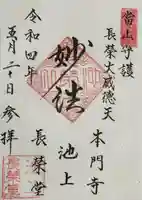 當山守護
長榮大威徳天
本門寺
池上
妙法
長榮堂
令和四年
五月二十日参拝
長榮堂